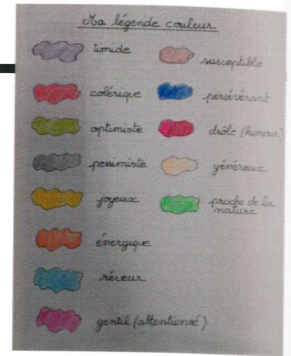 Ma légende couleur
timide
colérique
optimiste
pessimiste
joyeux
énergique
rêveur
gentil (attentionné)
susceptible
persévérant
drôle (humour)
généreux
proche de la
nature